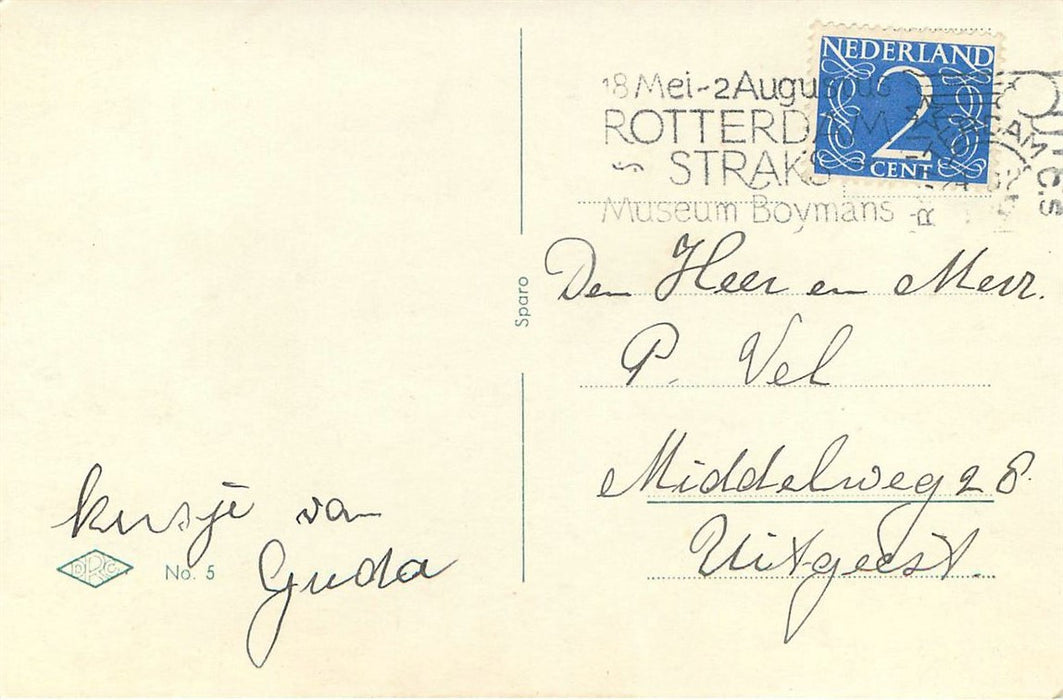 NEDERLAND
2
CENT
18 Mei-2 Augustus
ROTTERDAM
STRAKS
Museum Boymans
Den Heer en Mevr.
P. Vel
Middelweg 28.
Uitgeest.
Sparo
kusje van
Guda
No. 5